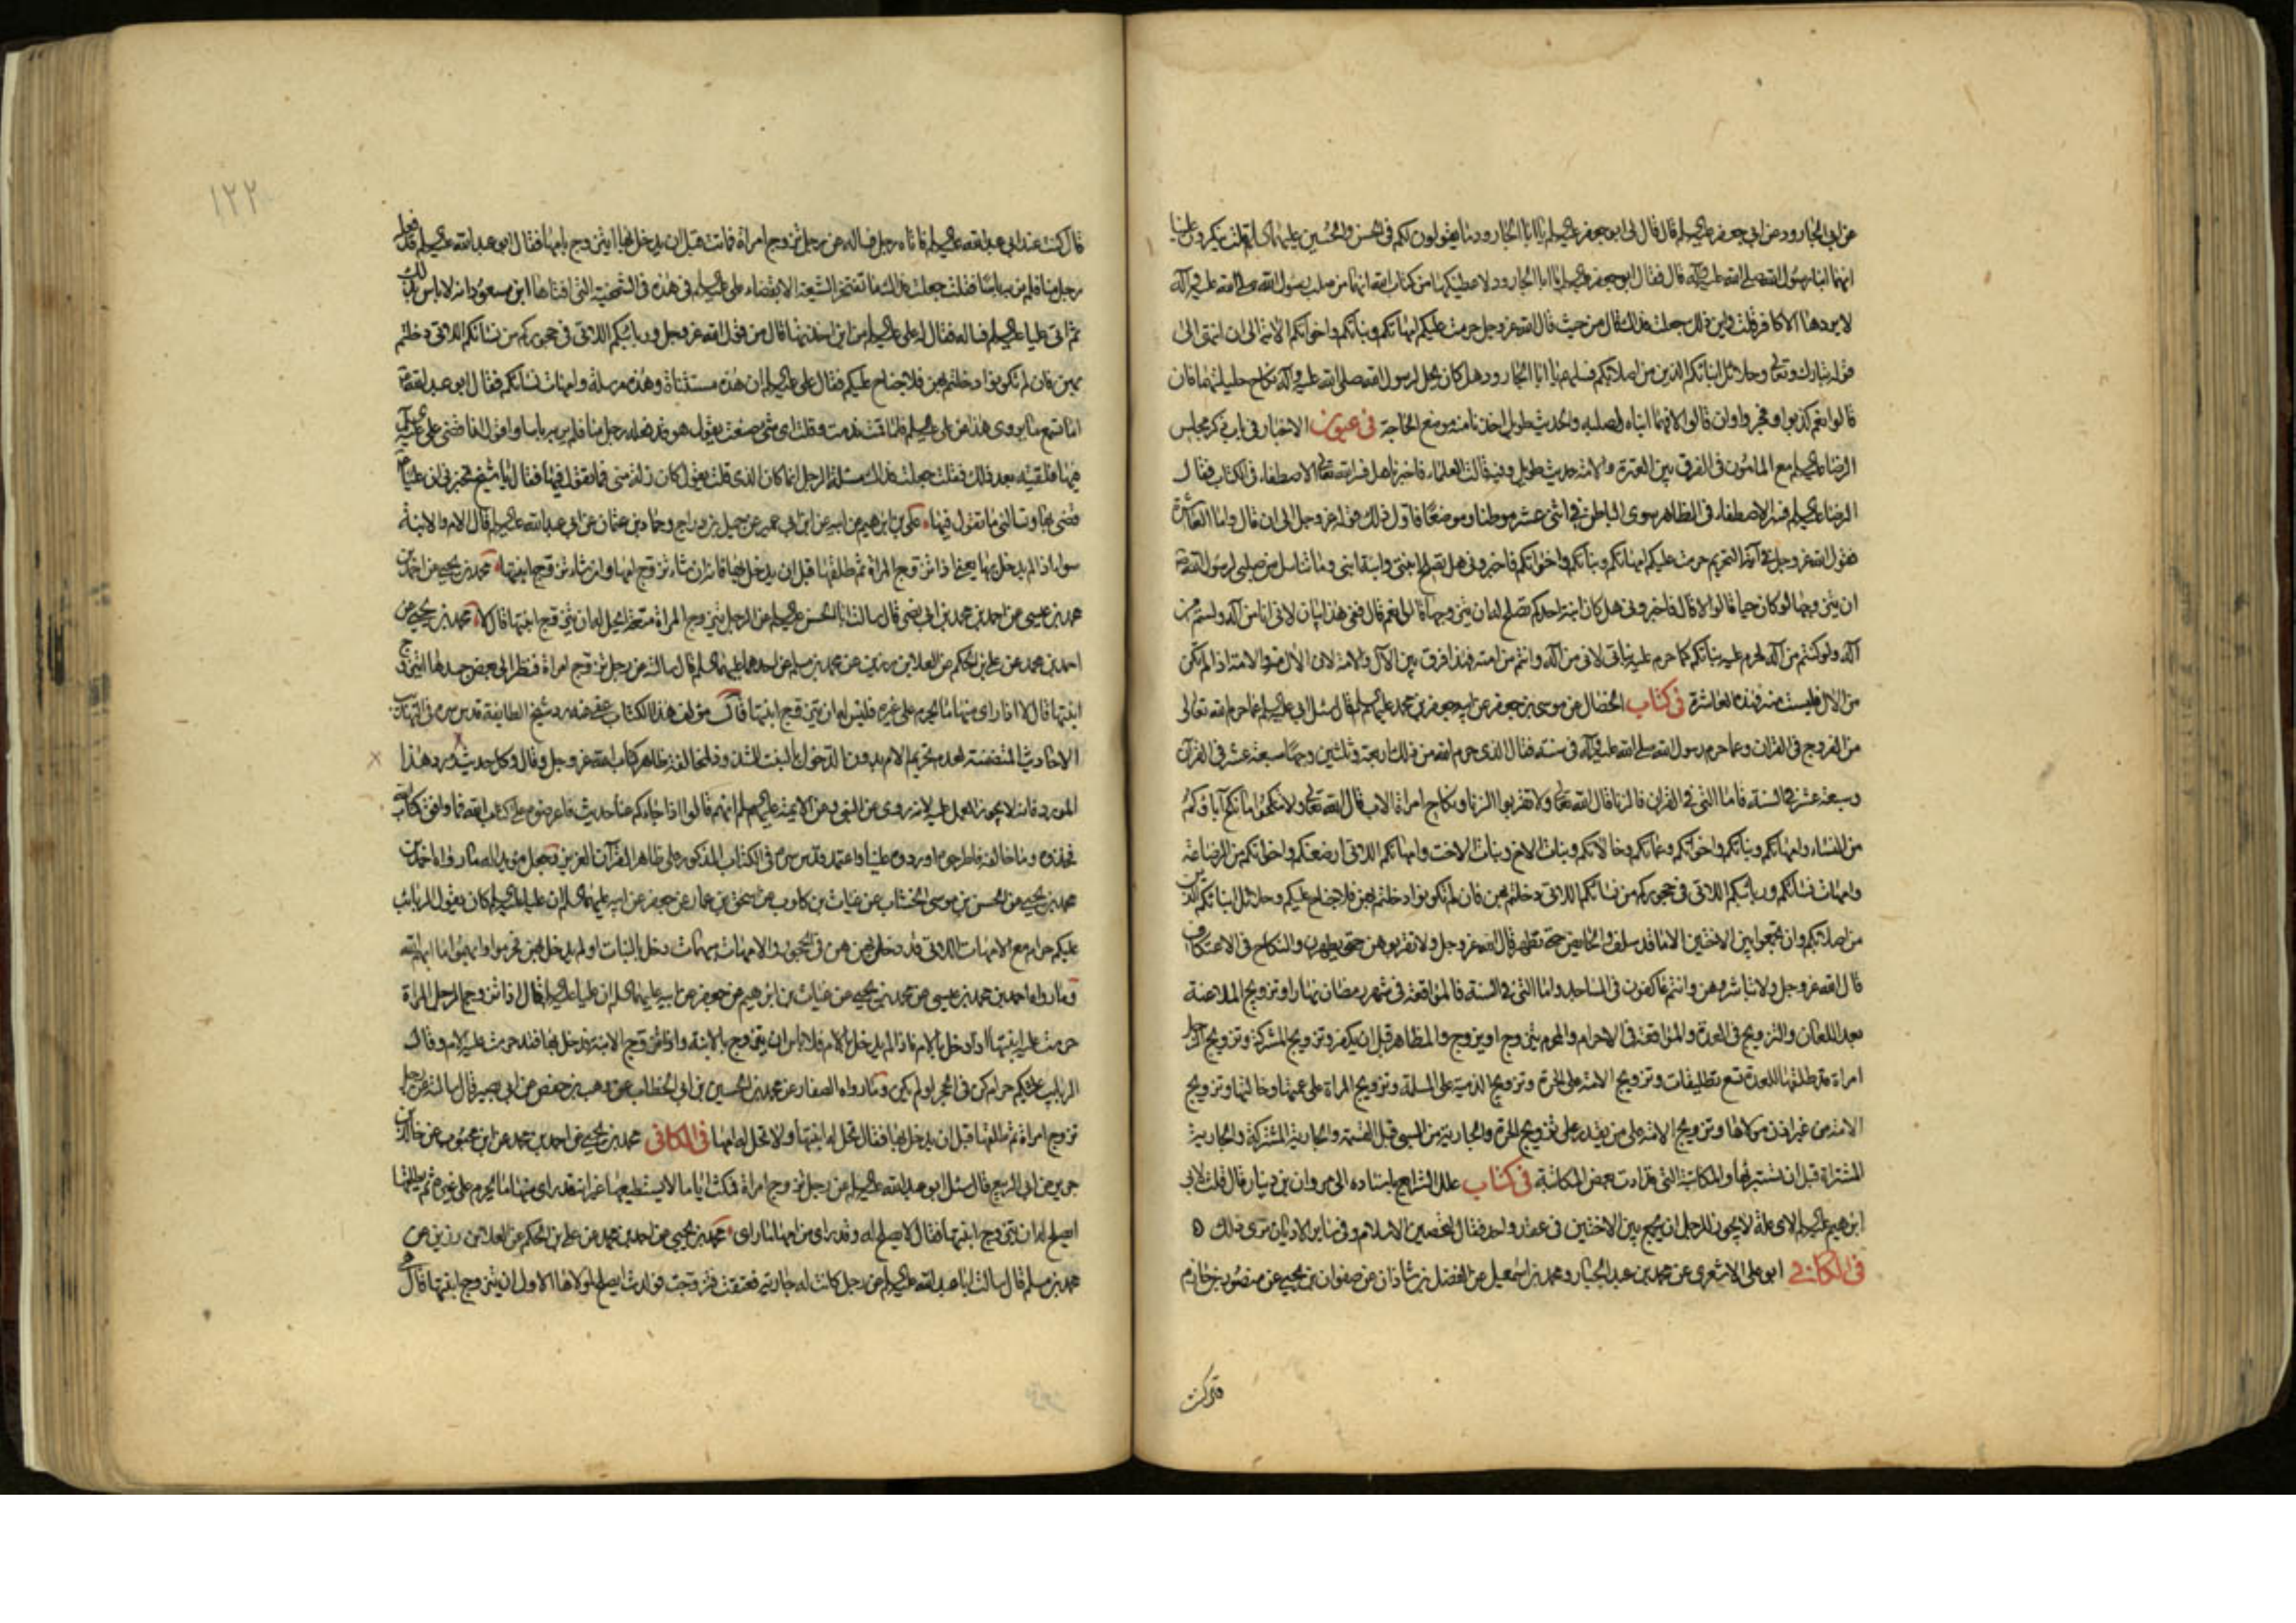 عن ابي الجارود عن ابي جعفر عليه السلام قال قال لي ابو جعفر عليه السلام يا ابا الجارود ما يقولون لكم في الحسن والحسين عليهما السلام قلت ينكرون علينا
انهما ابنا رسول الله صلى الله عليه وآله قال فقال ابو جعفر عليه السلام يا ابا الجارود لاعطينكها من كتاب الله انهما من صلب رسول الله صلى الله عليه وآله
لا يردها الا كافر قلت واين ذلك جعلت فداك قال من حيث قال الله عز وجل حرمت عليكم امهاتكم وبناتكم واخواتكم الآية الى ان انتهى الى
قوله تبارك وتعالى وحلائل ابنائكم الذين من اصلابكم فسلهم يا ابا الجارود هل كان يحل لرسول الله صلى الله عليه وآله نكاح حليلتهما فان
قالوا نعم كذبوا وفجروا وان قالوا لا فهما ابناه لصلبه والحديث طويل اخذنا منه موضع الحاجة في عيون الاخبار في باب ذكر مجلس
الرضا عليه السلام مع المامون في الفرق بين العترة والامة حديث طويل وفيه قالت العلماء فاخبرنا هل فسر الله تعالى الاصطفاء في الكتاب فقال
الرضا عليه السلام فسر الاصطفاء في الظاهر سوى الباطن في اثنى عشر موطنا وموضعا فاول ذلك قوله عز وجل الى ان قال واما العاشرة
فقول الله عز وجل في آية التحريم حرمت عليكم امهاتكم وبناتكم واخواتكم فاخبروني هل تصلح ابنتي وابنة ابنتي وما تناسل من صلبي لرسول الله
ان يتزوجها لو كان حيا قالوا لا قال فاخبروني هل كان ابنة احدكم تصلح له ان يتزوجها قالوا نعم قال ففي هذا بيان لاني انا من آله ولستم من
آله ولو كنتم من آله لحرم عليه بناتكم كما حرم عليه بناتي لاني من آله وانتم من امته فهذا فرق بين الآل والامة لان الآل منه والامة اذا لم تكن
من الآل فليست منه فهذه العاشرة في كتاب الخصال عن موسى بن جعفر عن ابيه جعفر بن محمد عليهما السلام قال سئل ابي عليه السلام عما حرم الله تعالى
من الفروج في القرآن وعما حرم رسول الله صلى الله عليه وآله في سنته فقال الذي حرم الله من ذلك اربعة وثلثين وجها سبعة عشر في القرآن
وسبعة عشر في السنة فاما التي في القرآن فالزنا قال الله تعالى ولا تقربوا الزنا ونكاح امراة الاب قال الله تعالى ولا تنكحوا ما نكح آباؤكم
من النساء وامهاتكم وبناتكم واخواتكم وعماتكم وخالاتكم وبنات الاخ وبنات الاخت وامهاتكم اللاتي ارضعنكم واخواتكم من الرضاعة
وامهات نسائكم وربائبكم اللاتي في حجوركم من نسائكم اللاتي دخلتم بهن فان لم تكونوا دخلتم بهن فلا جناح عليكم وحلائل ابنائكم الذين
من اصلابكم وان تجمعوا بين الاختين الا ما قد سلف والحايض حتى تطهر قال الله عز وجل ولا تقربوهن حتى يطهرن والنكاح في الاعتكاف
قال الله عز وجل ولا تباشروهن وانتم عاكفون في المساجد واما التي في السنة فالمواقعة في شهر رمضان نهارا وتزويج الملاعنة
بعد اللعان والتزويج في العدة والمواقعة في الاحرام والمحرم يتزوج او يزوج والمظاهر قبل ان يكفر وتزويج المشركة وتزويج الرجل
امراة قد طلقها للعدة تسع تطليقات وتزويج الامة على الحرة وتزويج الذمية على المسلمة وتزويج المراة على عمتها وخالتها وتزويج
الامة من غير اذن مولاها وتزويج الامة على من يقدر على تزويج الحرة والجارية من السبي قبل القسمة والجارية المشتركة والجارية
المشتراة قبل ان تستبرئها والمكاتبة التي قد ادت بعض المكاتبة في كتاب علل الشرايع باسناده الى مروان بن دينار قال قلت لابي
ابرهيم عليه السلام لاي علة لا يجوز للرجل ان يجمع بين الاختين في عقد واحد فقال لتحصين الاسلام وفي ساير الاديان ترى ذلك
في الكافي ابو علي الاشعري عن محمد بن عبد الجبار ومحمد بن اسمعيل عن الفضل بن شاذان عن صفوان بن يحيى عن منصور بن حازم
قال كنت
١٢٢
قال كنت عند ابي عبد الله عليه السلام فاتاه رجل فساله عن رجل تزوج امراة فماتت قبل ان يدخل بها ايتزوج بامها فقال ابو عبد الله عليه السلام قد فعله
رجل منا فلم نر به باسا فقلت جعلت فداك ما تفتخر الشيعة الا بقضاء علي عليه السلام في هذه في الشمخية التي افتاها ابن مسعود انه لا باس بذلك
ثم اتى عليا عليه السلام فساله فقال له علي عليه السلام من اين اخذتها قال من قول الله عز وجل وربائبكم اللاتي في حجوركم من نسائكم اللاتي دخلتم
بهن فان لم تكونوا دخلتم بهن فلا جناح عليكم فقال علي عليه السلام ان هذه مستثناة وهذه مرسلة وامهات نسائكم فقال ابو عبد الله
اما تسمع ما يروى هذا عن علي عليه السلام فلما قمت ندمت وقلت اي شيء صنعت يقول هو قد فعله رجل منا فلم نر به باسا واقول انا قضى علي عليه السلام
فيها فلقيته بعد ذلك فقلت جعلت فداك مسئلة الرجل انما كان الذي قلت يقول كان زلة مني فما تقول فيها فقال يا شيخ تخبرني ان عليا
قضى بها وتسالني ما تقول فيها علي بن ابرهيم عن ابيه عن ابن ابي عمير عن جميل بن دراج وحماد بن عثمان عن ابي عبد الله عليه السلام قال الام والابنة
سواء اذا لم يدخل بها يعني اذا تزوج المراة ثم طلقها قبل ان يدخل بها فانه ان شاء تزوج امها وان شاء تزوج ابنتها محمد بن يحيى عن احمد بن
محمد بن عيسى عن احمد بن محمد بن ابي نصر قال سالت ابا الحسن عليه السلام عن الرجل يتزوج المراة متعة ايحل له ان يتزوج ابنتها قال لا محمد بن يحيى عن
احمد بن محمد عن علي بن الحكم عن العلا بن رزين عن محمد بن مسلم عن احدهما عليهما السلام قال سالته عن رجل تزوج امراة فنظر الى بعض جسدها ايتزوج
ابنتها قال لا اذا راى منها ما يحرم على غيره فليس له ان يتزوج ابنتها قال مؤلف هذا الكتاب عفى عنه رد شيخ الطايفة قدس سره في التهذيب
الاحاديث المتضمنة لعدم تحريم الام بدون الدخول بالبنت للشذوذ ولمخالفة ظاهر كتاب الله عز وجل وقال وكل حديث ورد هذا
المورد فانه لا يجوز العمل عليه لانه روى عن النبي وعن الائمة عليهم السلام انهم قالوا اذا جاءكم عنا حديث فاعرضوه على كتاب الله فما وافق كتاب الله
فخذوه وما خالفه فاطرحوه او ردوه علينا واعتمد قدس سره في الكتاب المذكور على ظاهر القرآن العزيز وجعل مؤيدا له ما رواه احمد بن
محمد بن يحيى عن الحسن بن موسى الخشاب عن غياث بن كلوب عن اسحق بن عمار عن جعفر عن ابيه عليهما السلام ان عليا عليه السلام كان يقول الربائب
عليكم حرام مع الامهات اللاتي قد دخلتم بهن هن في الحجور والامهات مبهمات دخل بالبنات او لم يدخل بهن فحرموا وابهموا ما ابهم الله
وما رواه احمد بن محمد بن عيسى عن محمد بن يحيى عن غياث بن ابرهيم عن جعفر عن ابيه عليهما السلام ان عليا عليه السلام قال اذا تزوج الرجل المراة
حرمت عليه ابنتها اذا دخل بالام فاذا لم يدخل بالام فلا باس ان يتزوج بالابنة واذا تزوج الابنة فدخل بها فقد حرمت عليه الام وقال
الربايب عليكم حرام كن في الحجر او لم يكن وما رواه الصفار عن محمد بن الحسين بن ابي الخطاب عن وهب بن حفص عن ابي بصير قال سالته عن رجل
تزوج امراة ثم طلقها قبل ان يدخل بها فقال تحل له ابنتها ولا تحل له امها في الكافي محمد بن يحيى عن احمد بن محمد عن ابن محبوب عن خالد بن
جرير عن ابي الربيع قال سئل ابو عبد الله عليه السلام عن رجل تزوج امراة فمكث اياما لا يستطيعها غير انه قد راى منها ما يحرم على غيره ثم يطلقها
ايصلح له ان يتزوج ابنتها فقال لا يصلح له وقد راى من امها ما راى محمد بن يحيى عن احمد بن محمد عن علي بن الحكم عن العلا بن رزين عن
محمد بن مسلم قال سالت ابا عبد الله عليه السلام عن رجل كانت له جارية فعتقت فتزوجت فولدت ايصلح لمولاها الاول ان يتزوج ابنتها قال